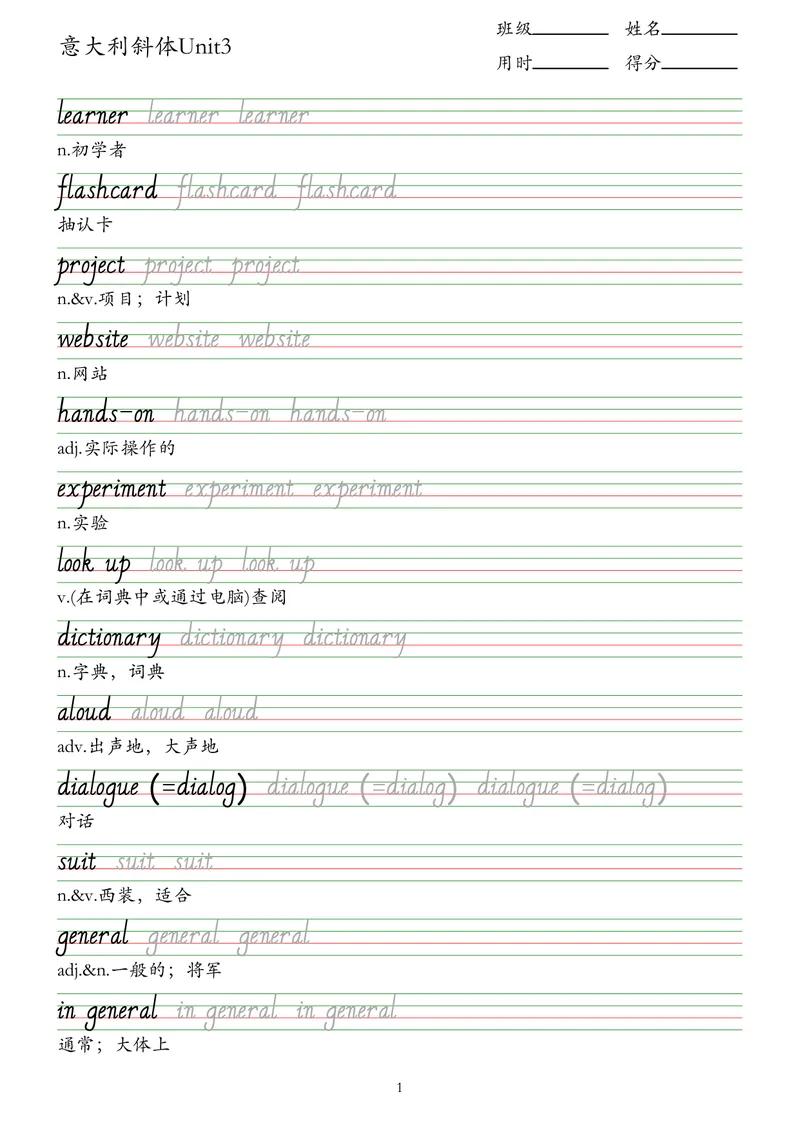 意大利斜体Unit3
班级 姓名
用时 得分
learner learner learner
n.初学者
flashcard flashcard flashcard
抽认卡
project project project
n.&v.项目；计划
website website website
n.网站
hands-on hands-on hands-on
adj.实际操作的
experiment experiment experiment
n.实验
look up look up look up
v.(在词典中或通过电脑)查阅
dictionary dictionary dictionary
n.字典，词典
aloud aloud aloud
adv.出声地，大声地
dialogue (=dialog) dialogue (=dialog) dialogue (=dialog)
对话
suit suit suit
n.&v.西装，适合
general general general
adj.&n.一般的；将军
in general in general in general
通常；大体上
1